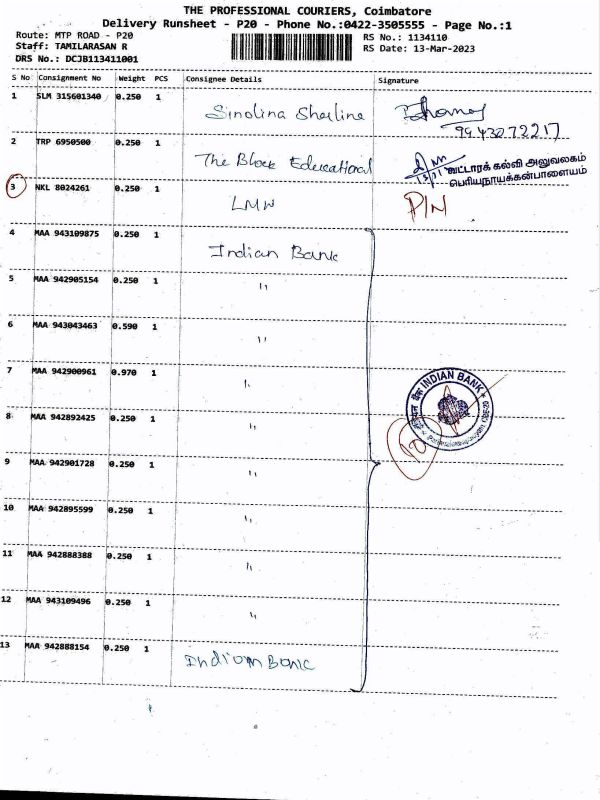 THE PROFESSIONAL COURIERS, Coimbatore
Delivery Runsheet - P20 - Phone No.:0422-3505555 - Page No.:1
Route: MTP ROAD - P20 RS No.: 1134110
Staff: TAMILARASAN R RS Date: 13-Mar-2023
DRS No.: DCJB113411001
S No Consignment No Weight PCS Consignee Details Signature
1 SLM 315601340 0.250 1 Sinolina Sharline
9943272217
2 TRP 6950500 0.250 1 The Block Educational வட்டாரக் கல்வி அலுவலகம்
பெரியநாயக்கன்பாளையம்
3 NKL 8024261 0.250 1 LMW P/N
4 MAA 943109875 0.250 1 Indian Bank
5 MAA 942905154 0.250 1 "
6 MAA 943043463 0.590 1 "
7 MAA 942900961 0.970 1 "
INDIAN BANK
8 MAA 942892425 0.250 1 "
10
9 MAA 942901728 0.250 1 "
10 MAA 942895599 0.250 1 "
11 MAA 942888388 0.250 1 "
12 MAA 943109496 0.250 1 "
13 MAA 942888154 0.250 1 Indian Bank